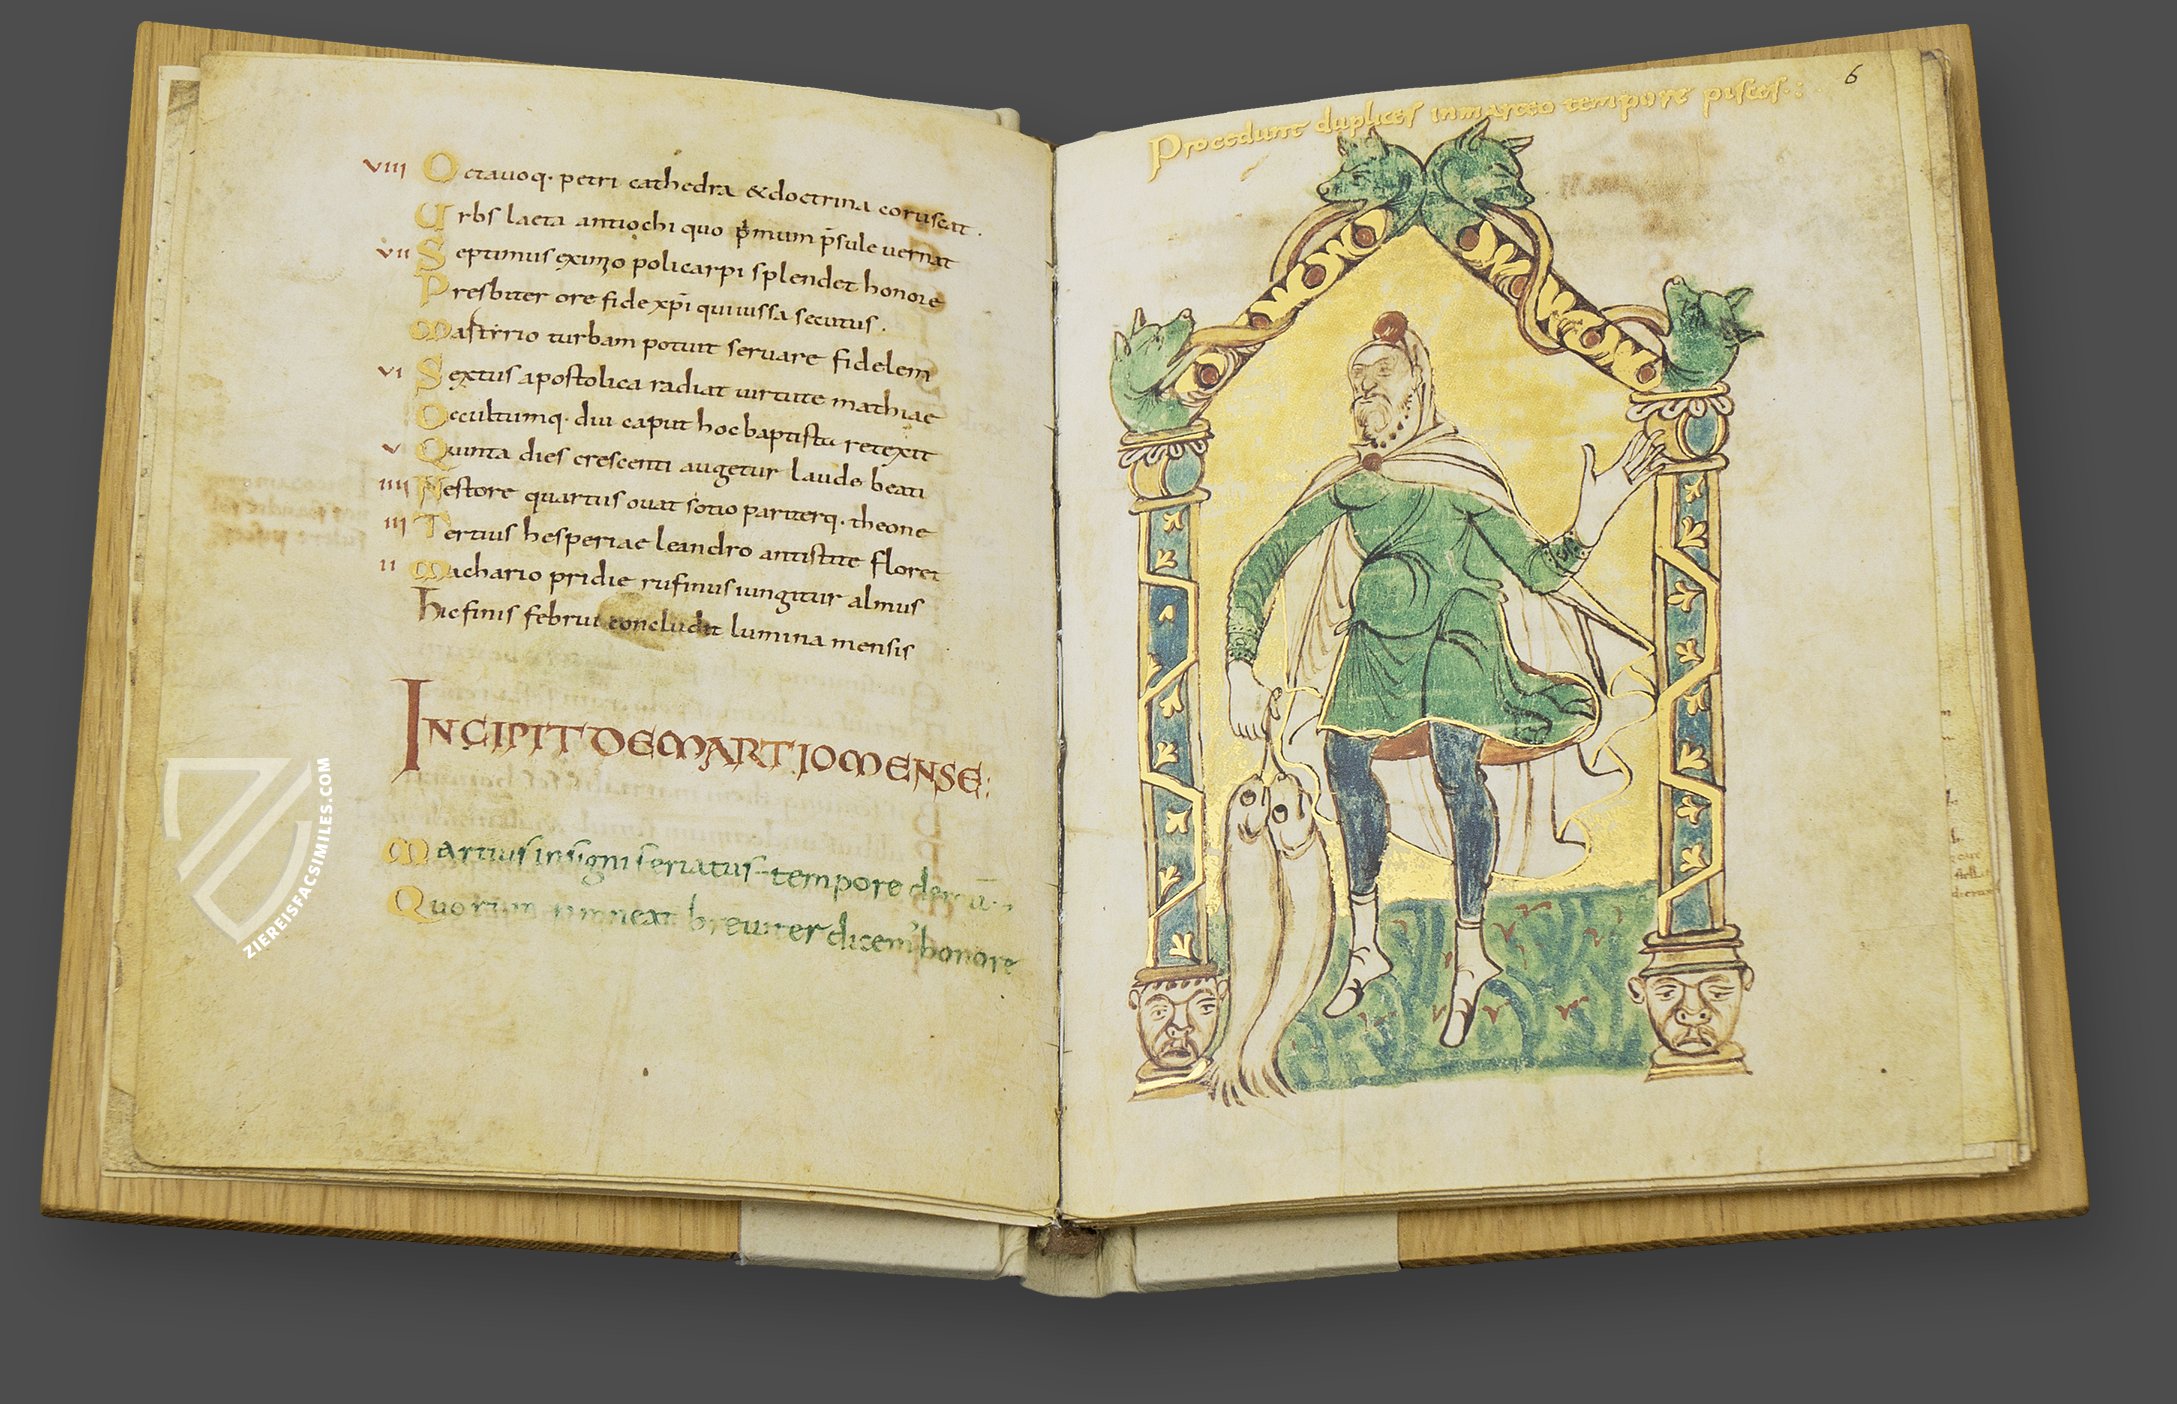 VIII Octauoq. petri cathedra & doctrina coruscat.
Urbs laeta antiochi quo p̄mum p̄sule uernat
VII Septimus eximio policarpi splendet honore
Presbiter ore fide xp̄i qui iussa secutus.
turbam potuit seruare fidelem
VI Sextus apostolica radiat uirtute mathiae
Occultumq. diu caput hoc baptista retexit
V Quinta dies crescenti augetur laude beati
IIII Nestore quartus ouat sotio pariterq. theone
III Tertius hesperiae leandro antistite floret
II Machario pridie rufinus iungitur almus
Hic finis februi concludit lumina mensis
INCIPIT DE MARTIO MENSE:
Martius insigni seriatus tempore
Quorum breuiter dicem' honore
6
Procedunt duplices in marcio tempore pisces:
ZIEREISFACSIMILES.COM